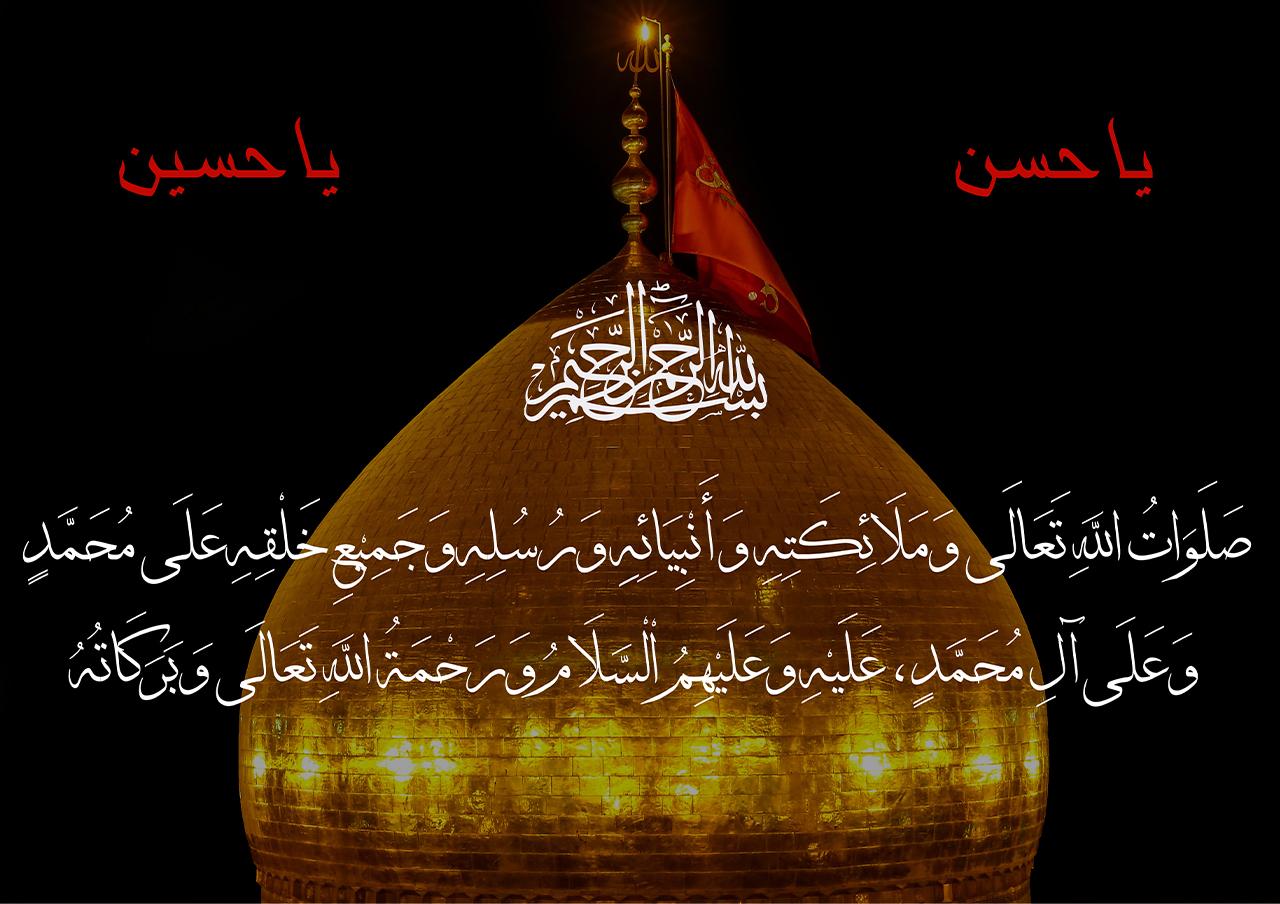 لله
يا حسن
يا حسين
بسم الله الرحمن الرحيم
صَلَوَاتُ اللَّهِ تَعَالَى وَمَلَائِكَتِهِ وَأَنْبِيَائِهِ وَرُسُلِهِ وَجَمِيْعِ خَلْقِهِ عَلَى مُحَمَّدٍ
وَعَلَى آلِ مُحَمَّدٍ، عَلَيْهِ وَعَلَيْهِمُ ٱلْسَّلَامُ وَرَحْمَةُ اللَّهِ تَعَالَى وَبَرَكَاتُهُ